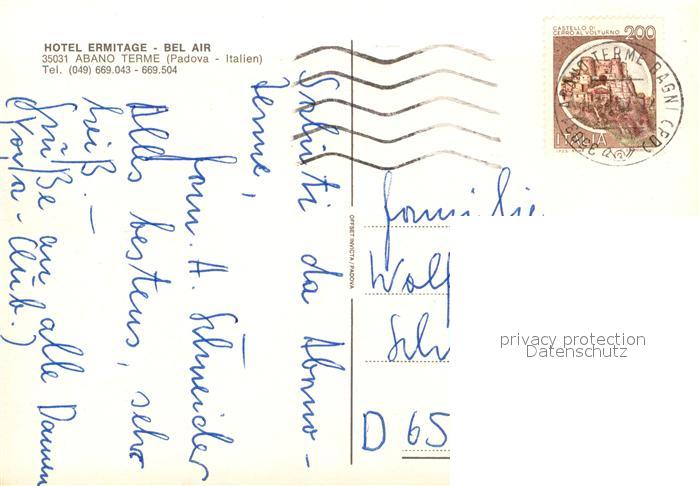 HOTEL ERMITAGE - BEL AIR
35031 ABANO TERME (Padova - Italien)
Tel. (049) 669.043 - 669.504
CASTELLO DI
CERRO AL VOLTURNO
200
ABANO TERME BAGNI (PD)
ITALIA
Saluti da Abano-
Terme,
Fam. A. Schneider
Alles bestens, sehr
heiß. -
Grüße an alle Damen
(        - Club.)
OFFSET INVICTA / PADOVA
Familie
Wolf
Sch
D 65
privacy protection
Datenschutz